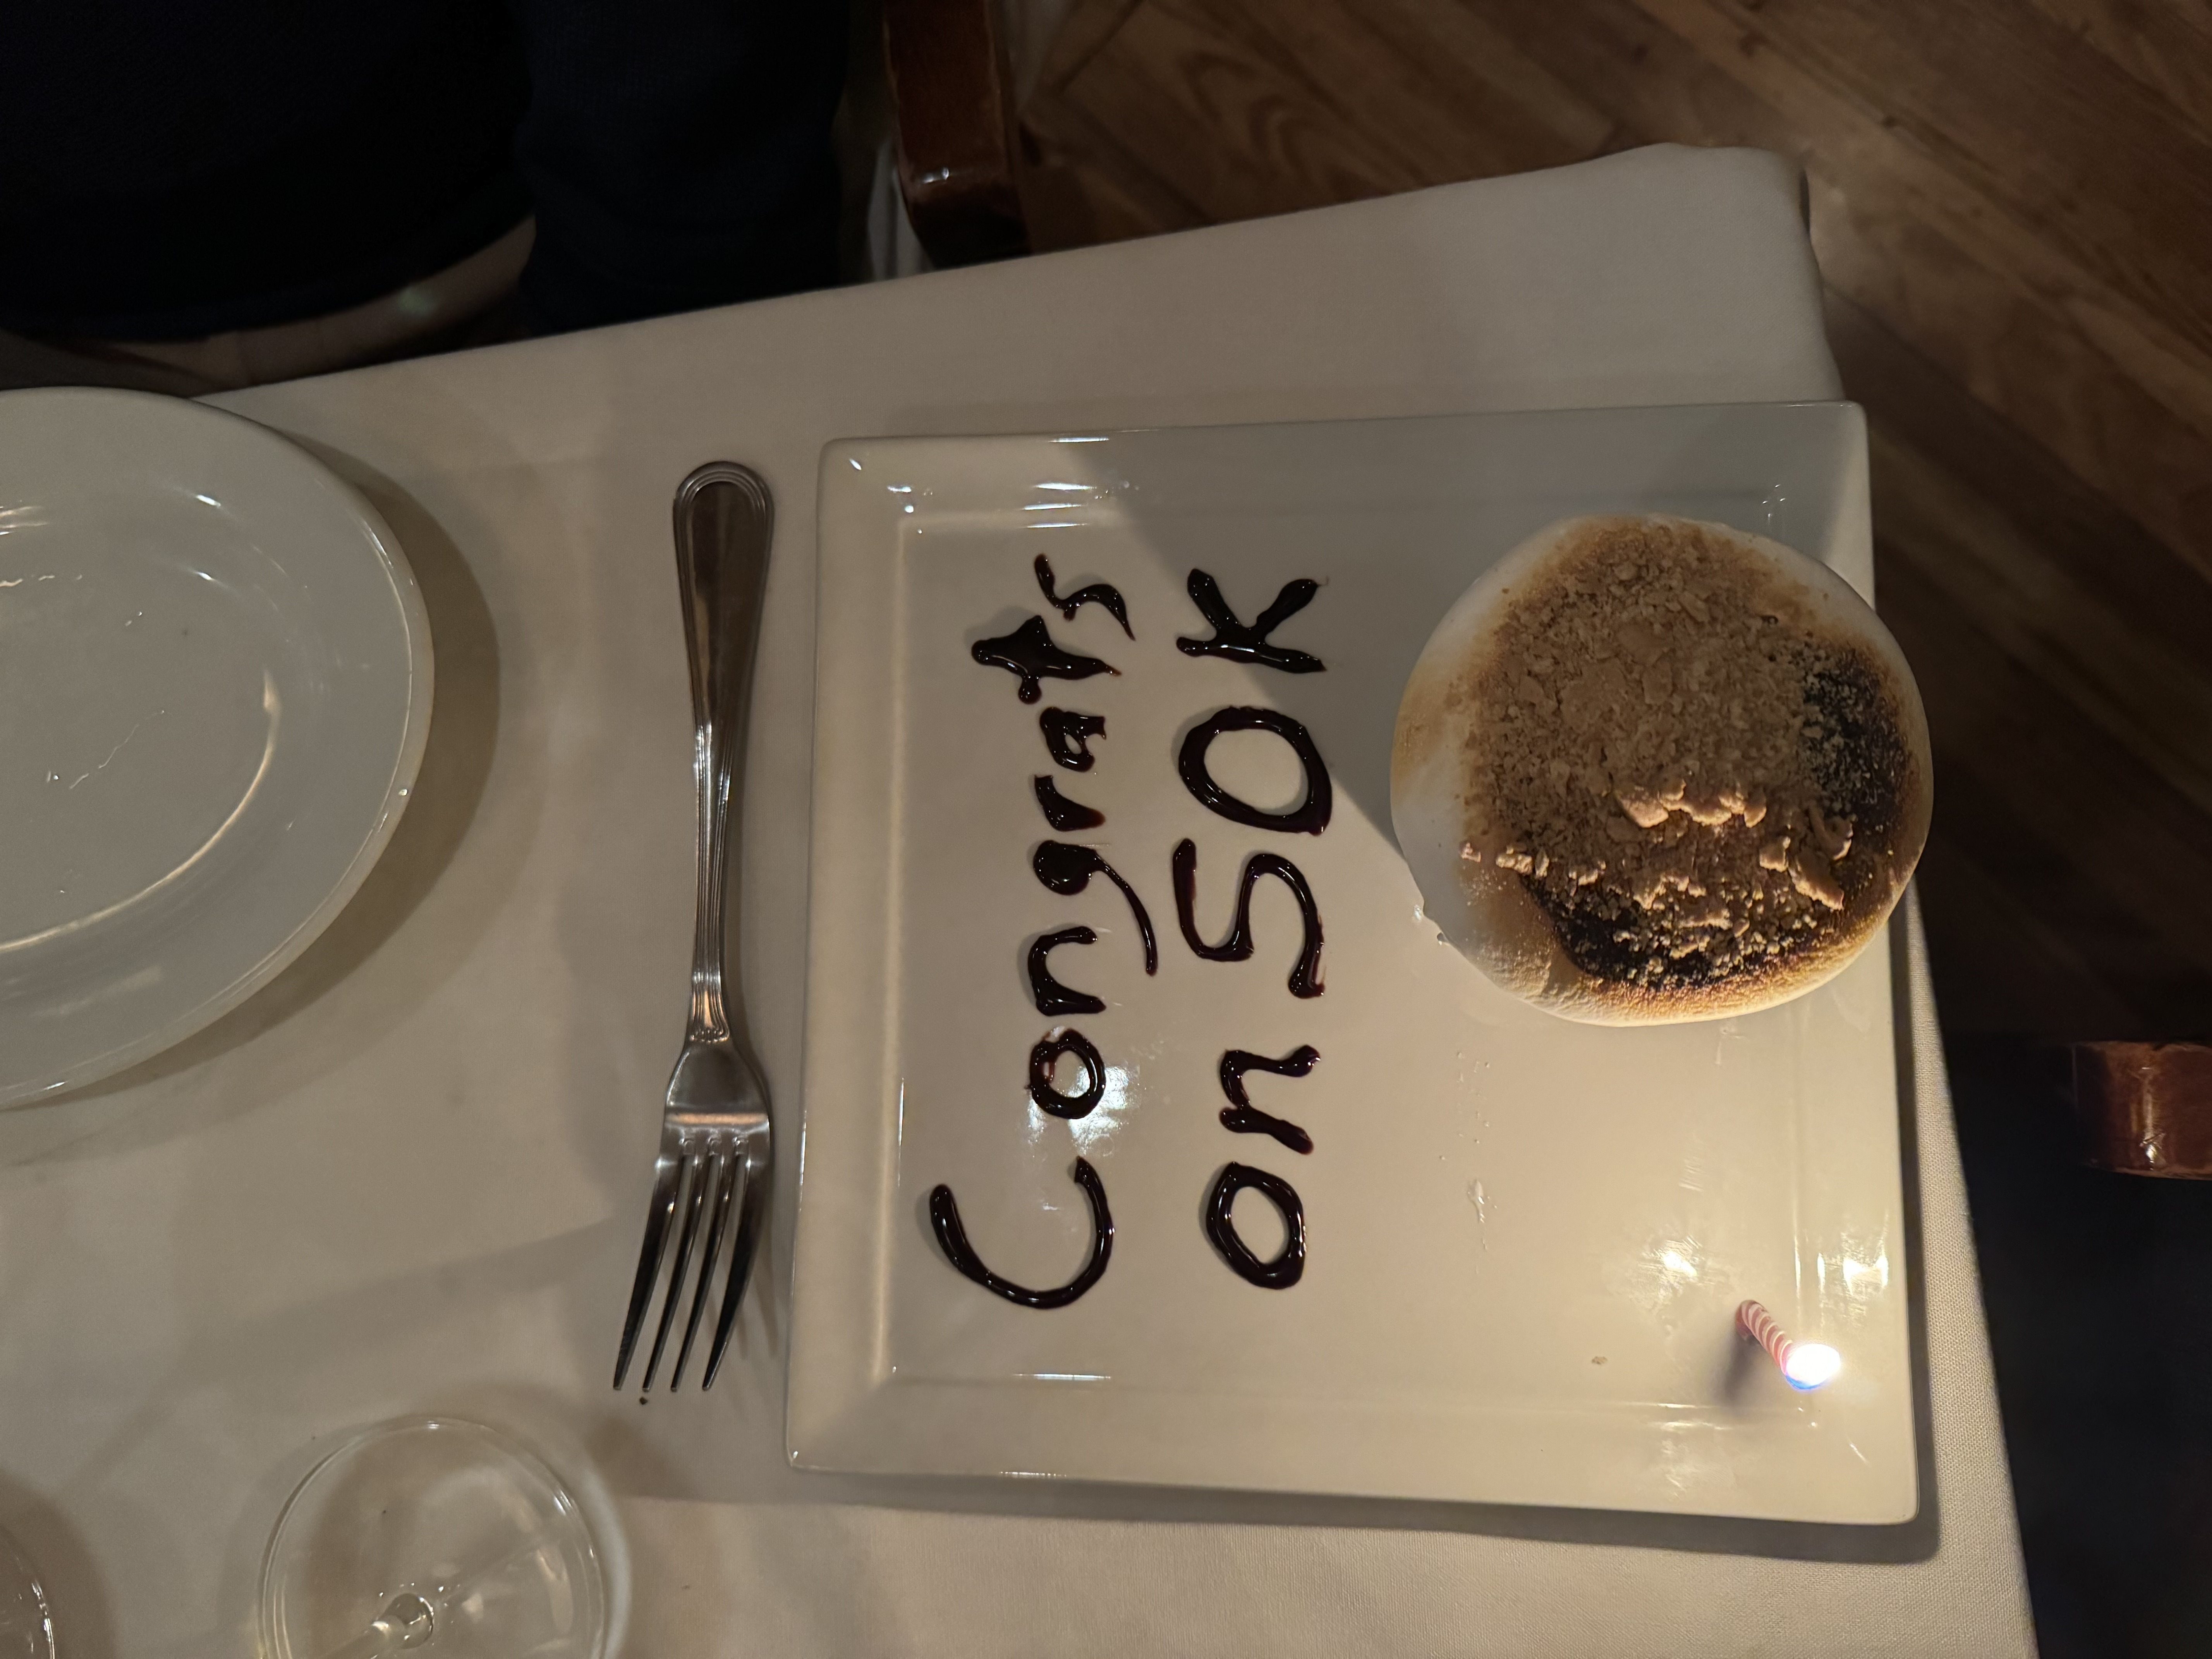 Congrats
on 50K